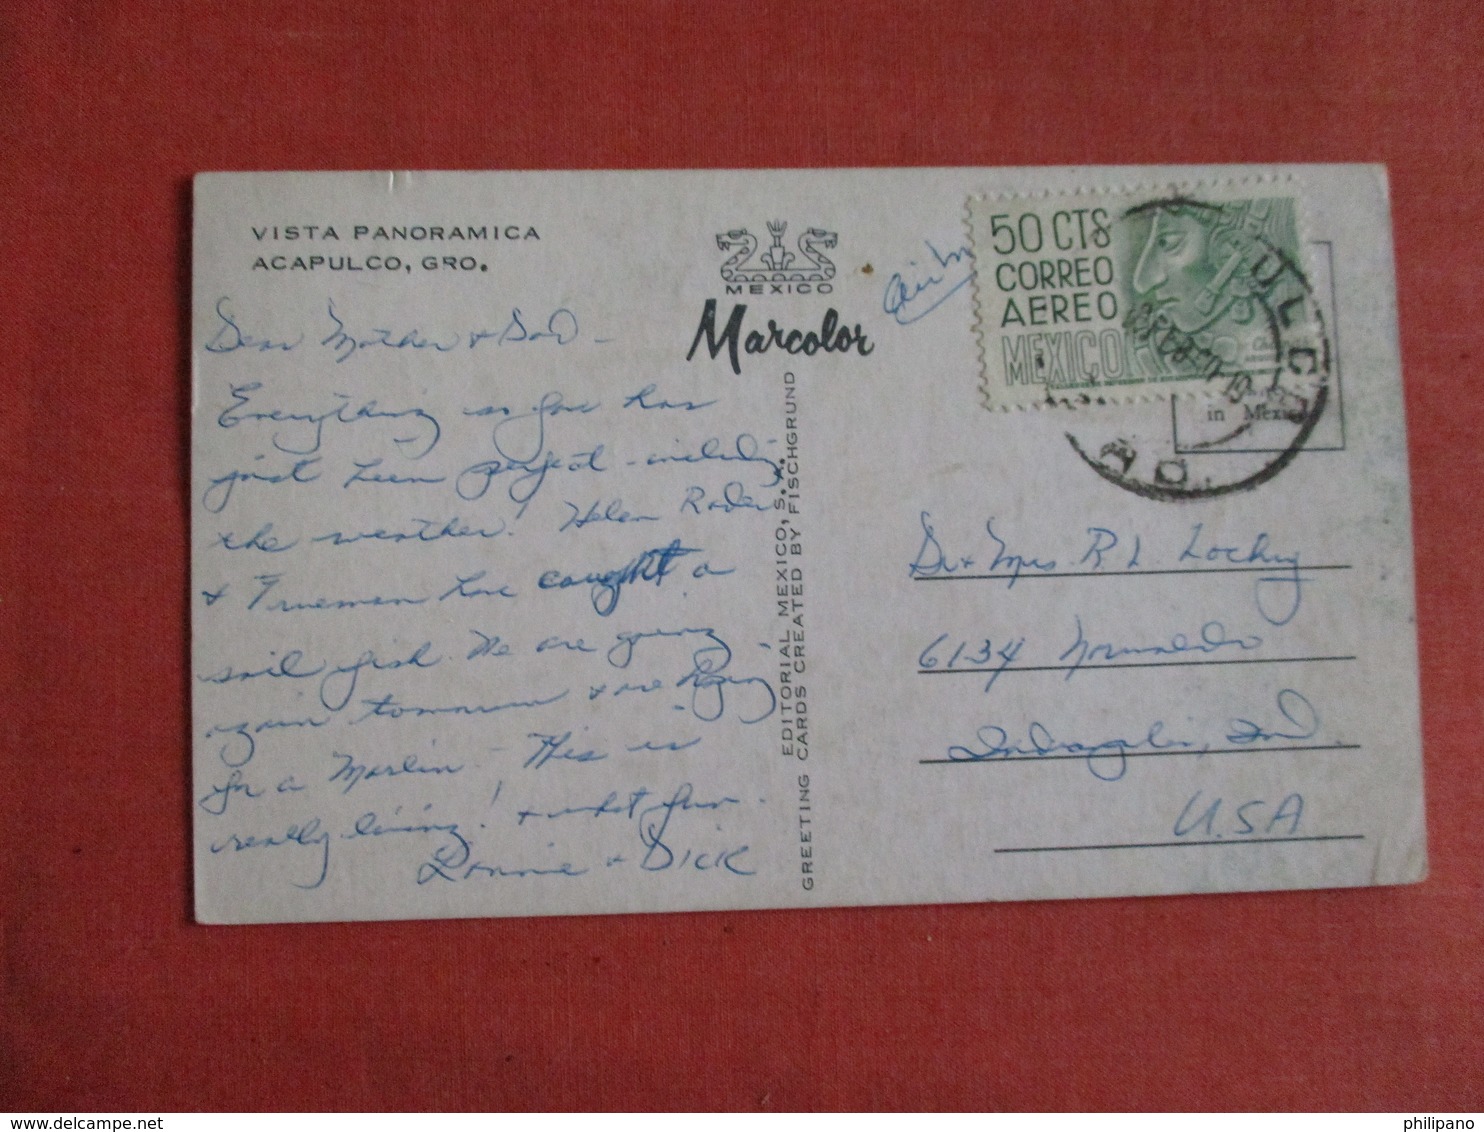 VISTA PANORAMICA
ACAPULCO, GRO.
MEXICO
Marcolor
Dear Mother & Dad -
Everything so far has
just been perfect - including
the weather! Helen Rader
& Trueman have caught a
sail fish. We are going
again tomorrow & are hoping
for a Marlin - This is
really living! & what fun.
Lonnie & DICK
EDITORIAL MEXICO, S.A.
GREETING CARDS CREATED BY FISCHGRUND
50 CTS
CORREO
AEREO
MEXICO
in Mexico
Dr & Mrs R L Lochry
6134
Indianapolis, Ind.
U.S.A
philipano